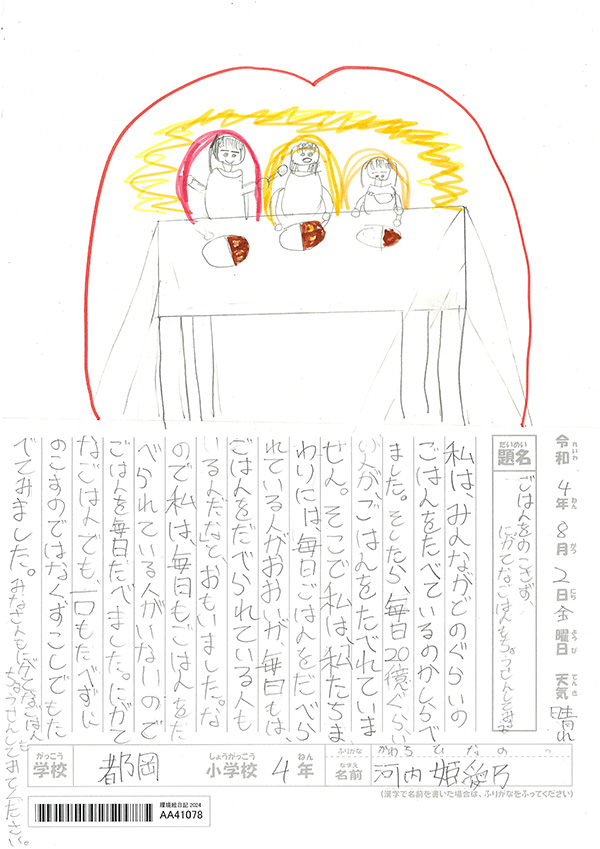 令和 4年 8月 2日 金曜日 天気 晴れ
れいわ ねん がつ にち ようび てんき
だいめい
題名
ごはんをのこさず、
にがてなごはんもちょうせんしてみた
私は、みんながどのぐらいの
ごはんをたべているのかしらべ
ました。そしたら、毎日20億ぐらい
い人が、ごはんをたべれていま
せん。そこで私は、「私たちま
わりには毎日ごはんをだべら
れている人がおおいが、毎日もは、
ごはんをだべられている人も
いるんだな」とおもいました。な
ので私は、毎日もごはんをた
べられている人がいないので
ごはんを毎日だべました。にがて
なごはんでも、一口もたべずに
のこすのではなくすこしでもた
べてみました。みなさんもにがてなごはんも
ちょうせんしてみてください。
がっこう しょうがっこう ねん ふりがな かわち ひなの
学校 都岡 小学校 4年 なまえ 名前 河内 姫愛乃
(漢字で名前を書いた場合は、ふりがなをふってください)
環境絵日記 2024
AA41078